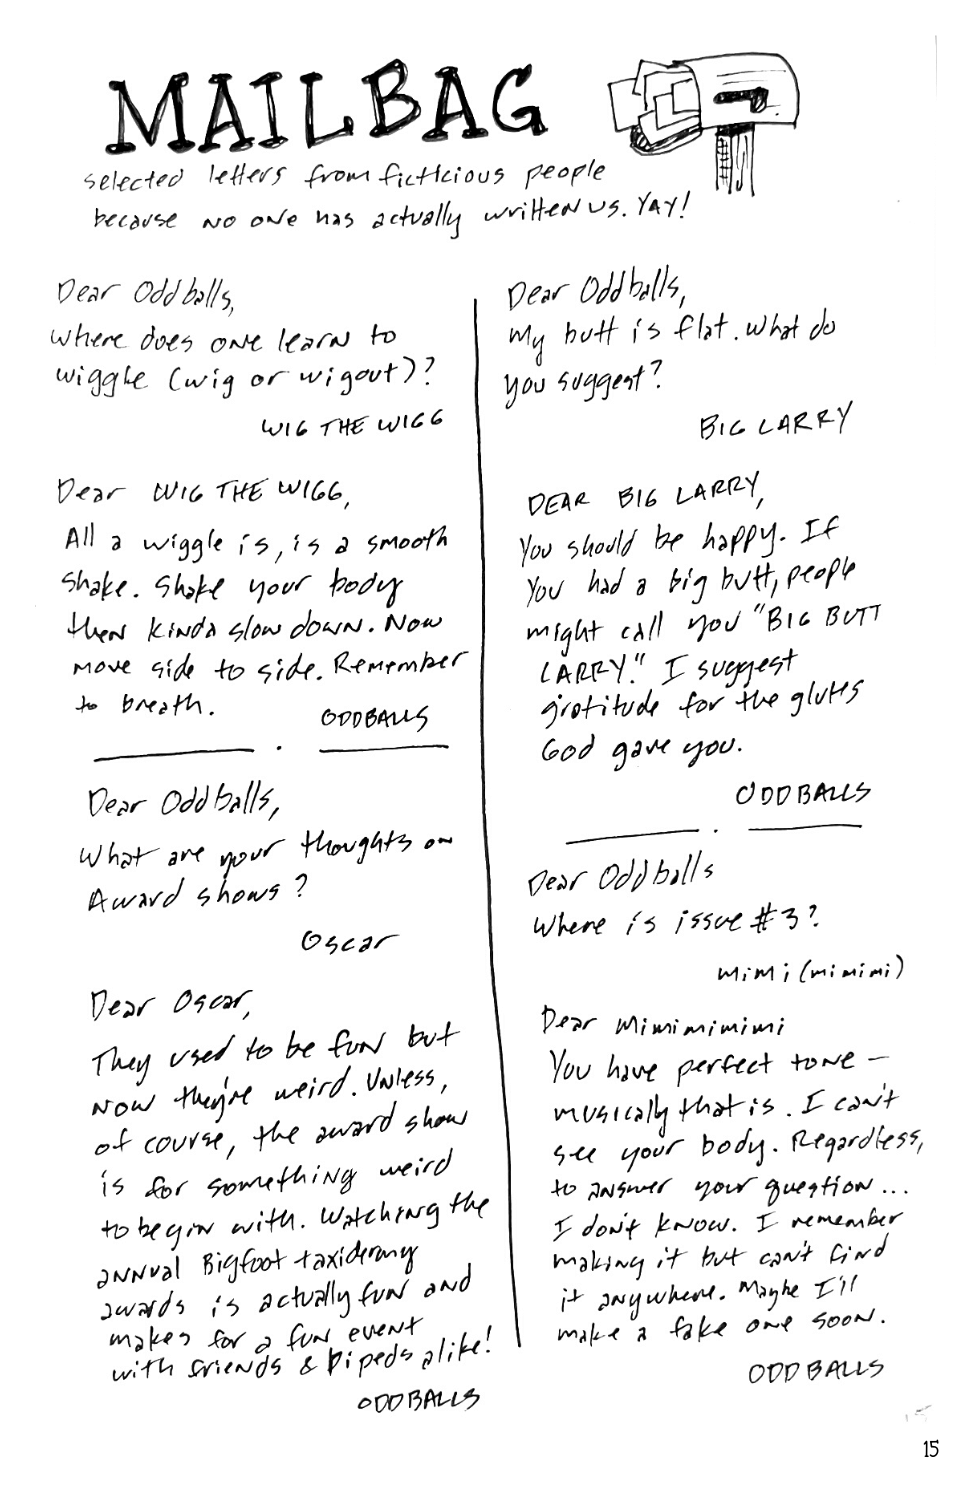 MAILBAG
selected letters from ficticious people
because no one has actually written us. YAY!
Dear Oddballs,
where does one learn to
wiggle (wig or wigout)?
WIG THE WIGG
Dear WIG THE WIGG,
All a wiggle is, is a smooth
shake. Shake your body
then kinda slow down. Now
move side to side. Remember
to breath.
ODDBALLS
Dear Oddballs,
What are your thoughts on
Award shows?
Oscar
Dear Oscar,
They used to be fun but
now they're weird. Unless,
of course, the award show
is for something weird
to begin with. Watching the
annual Bigfoot taxidermy
awards is actually fun and
makes for a fun event
with friends & bipeds alike!
ODDBALLS
Dear Oddballs,
My butt is flat. What do
you suggest?
BIG LARRY
DEAR BIG LARRY,
You should be happy. If
you had a big butt, people
might call you "BIG BUTT
LARRY." I suggest
gratitude for the glutes
God gave you.
ODDBALLS
Dear Oddballs
Where is issue #3?
Mimi (mimimi)
Dear Mimimimimi
You have perfect tone –
musically that is. I can't
see your body. Regardless,
to answer your question...
I don't know. I remember
making it but can't find
it anywhere. Maybe I'll
make a fake one soon.
ODDBALLS
15
15